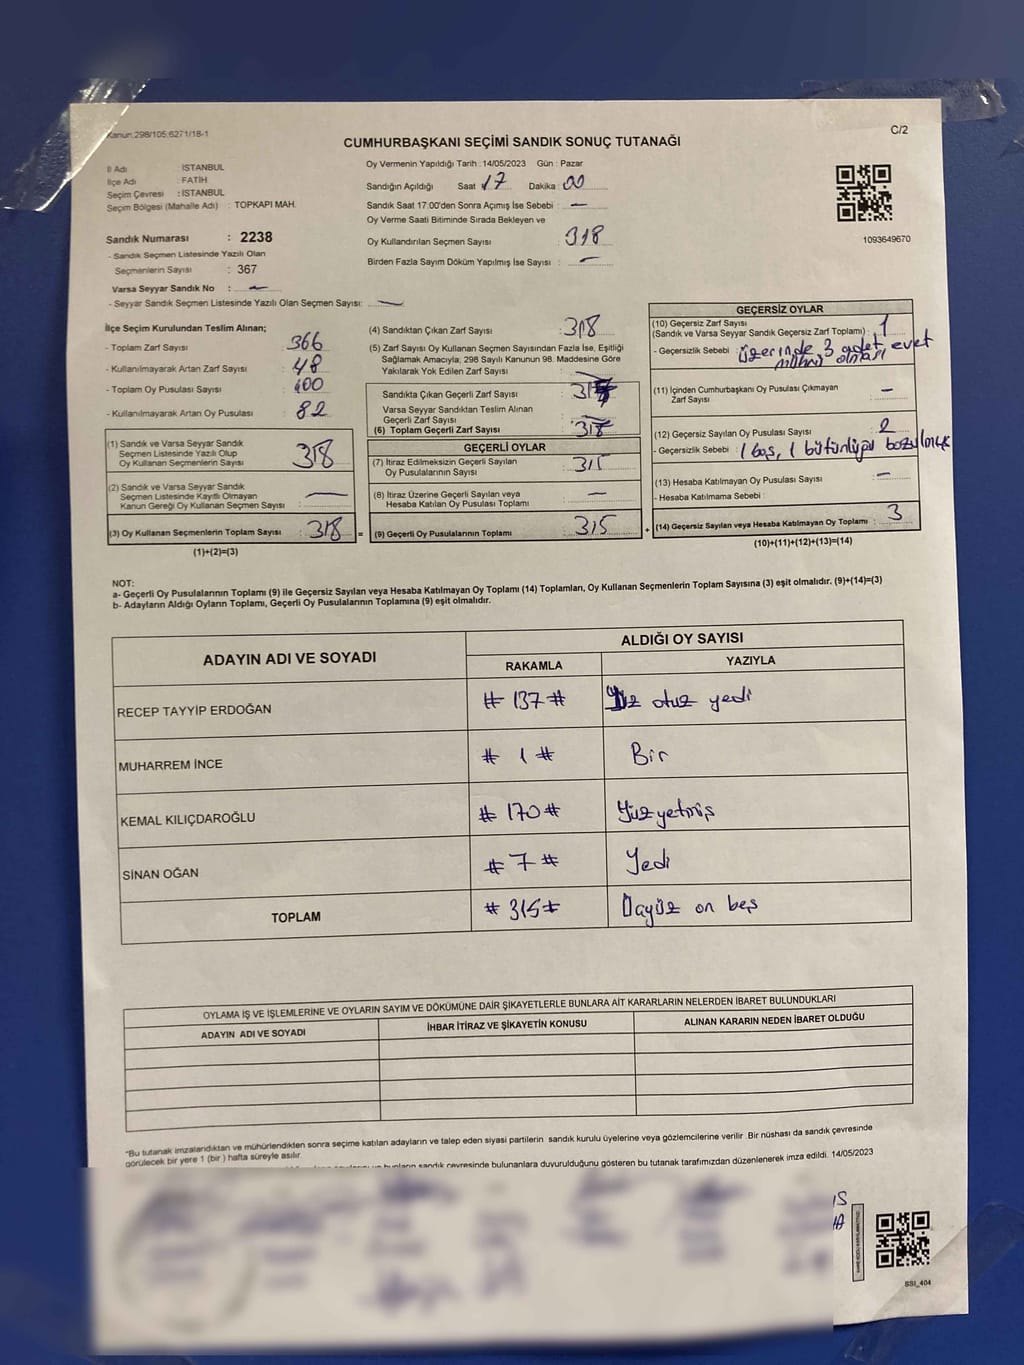 Kanun:298/105;6271/18-1
C/2
CUMHURBAŞKANI SEÇİMİ SANDIK SONUÇ TUTANAĞI
İl Adı : İSTANBUL
İlçe Adı : FATİH
Seçim Çevresi : İSTANBUL
Seçim Bölgesi (Mahalle Adı) : TOPKAPI MAH.
Sandık Numarası : 2238
- Sandık Seçmen Listesinde Yazılı Olan
Seçmenlerin Sayısı : 367
Varsa Seyyar Sandık No : —
- Seyyar Sandık Seçmen Listesinde Yazılı Olan Seçmen Sayısı: —
Oy Vermenin Yapıldığı Tarih : 14/05/2023 Gün : Pazar
Sandığın Açıldığı Saat 17 Dakika : 00
Sandık Saat 17:00'den Sonra Açımış İse Sebebi : —
Oy Verme Saati Bitiminde Sırada Bekleyen ve
Oy Kullandırılan Seçmen Sayısı : 318
Birden Fazla Sayım Döküm Yapılmış İse Sayısı : —
1093649670
İlçe Seçim Kurulundan Teslim Alınan;
- Toplam Zarf Sayısı : 366
- Kullanılmayarak Artan Zarf Sayısı : 48
- Toplam Oy Pusulası Sayısı : 400
- Kullanılmayarak Artan Oy Pusulası : 82
(1) Sandık ve Varsa Seyyar Sandık
Seçmen Listesinde Yazılı Olup
Oy Kullanan Seçmenlerin Sayısı : 318
(2) Sandık ve Varsa Seyyar Sandık
Seçmen Listesinde Kayıtlı Olmayan
Kanun Gereği Oy Kullanan Seçmen Sayısı : —
(3) Oy Kullanan Seçmenlerin Toplam Sayısı : 318 =
(1)+(2)=(3)
(4) Sandıktan Çıkan Zarf Sayısı : 318
(5) Zarf Sayısı Oy Kullanan Seçmen Sayısından Fazla İse, Eşitliği
Sağlamak Amacıyla; 298 Sayılı Kanunun 98. Maddesine Göre
Yakılarak Yok Edilen Zarf Sayısı : —
Sandıkta Çıkan Geçerli Zarf Sayısı :
Varsa Seyyar Sandıktan Teslim Alınan
Geçerli Zarf Sayısı : —
(6) Toplam Geçerli Zarf Sayısı :
GEÇERLİ OYLAR
(7) İtiraz Edilmeksizin Geçerli Sayılan
Oy Pusulalarının Sayısı : 315
(8) İtiraz Üzerine Geçerli Sayılan veya
Hesaba Katılan Oy Pusulası Toplamı : —
(9) Geçerli Oy Pusulalarının Toplamı : 315 +
GEÇERSİZ OYLAR
(10) Geçersiz Zarf Sayısı
(Sandık ve Varsa Seyyar Sandık Geçersiz Zarf Toplamı) : 1
- Geçersizlik Sebebi : üzerinde 3 adet evet
mührü olması
(11) İçinden Cumhurbaşkanı Oy Pusulası Çıkmayan
Zarf Sayısı : —
(12) Geçersiz Sayılan Oy Pusulası Sayısı : 2
- Geçersizlik Sebebi : 1 boş, 1 bütünlüğü bozulmuş
(13) Hesaba Katılmayan Oy Pusulası Sayısı : —
- Hesaba Katılmama Sebebi :
(14) Geçersiz Sayılan veya Hesaba Katılmayan Oy Toplamı : 3
(10)+(11)+(12)+(13)=(14)
NOT:
a- Geçerli Oy Pusulalarının Toplamı (9) ile Geçersiz Sayılan veya Hesaba Katılmayan Oy Toplamı (14) Toplamları, Oy Kullanan Seçmenlerin Toplam Sayısına (3) eşit olmalıdır. (9)+(14)=(3)
b- Adayların Aldığı Oyların Toplamı, Geçerli Oy Pusulalarının Toplamına (9) eşit olmalıdır.
ADAYIN ADI VE SOYADI
ALDIĞI OY SAYISI
RAKAMLA YAZIYLA
RECEP TAYYİP ERDOĞAN # 137 # Yüz otuz yedi
MUHARREM İNCE # 1 # Bir
KEMAL KILIÇDAROĞLU # 170 # Yüz yetmiş
SİNAN OĞAN # 7 # Yedi
TOPLAM # 315 # Üçyüz on beş
OYLAMA İŞ VE İŞLEMLERİNE VE OYLARIN SAYIM VE DÖKÜMÜNE DAİR ŞİKAYETLERLE BUNLARA AİT KARARLARIN NELERDEN İBARET BULUNDUKLARI
ADAYIN ADI VE SOYADI İHBAR İTİRAZ VE ŞİKAYETİN KONUSU ALINAN KARARIN NEDEN İBARET OLDUĞU
"Bu tutanak imzalandıktan ve mühürlendikten sonra seçime katılan adayların ve talep eden siyasi partilerin sandık kurulu üyelerine veya gözlemcilerine verilir. Bir nüshası da sandık çevresinde
görülecek bir yere 1 (bir) hafta süreyle asılır.
bunların sandık çevresinde bulunanlara duyurulduğunu gösteren bu tutanak tarafımızdan düzenlenerek imza edildi. 14/05/2023
SSI_404